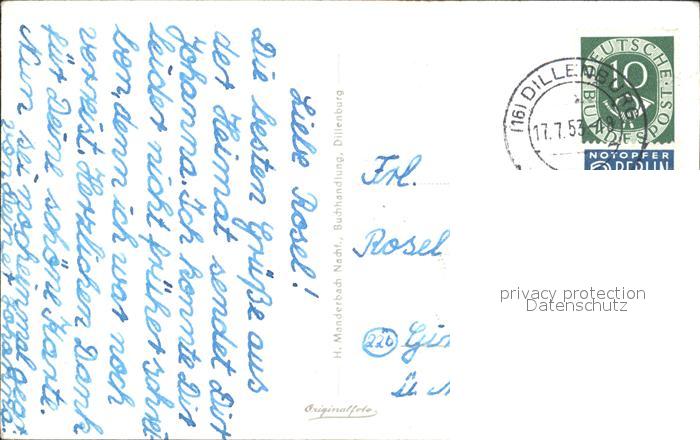 Liebe Rosel!
Die besten Grüße aus
der Heimat sendet Dir
Johanna. Ich konnte Dir
leider nicht früher schrei
ben, denn ich war noch
verreist. Herzlichen Dank
für Deine schöne Karte.
Nun sei nochmal gegr.
von Deiner Johanna.
H. Manderbach Nachf., Buchhandlung, Dillenburg
Originalfoto
Frl.
Rosel
22b
(16) DILLENBURG
17.7.53
DEUTSCHE
BUNDESPOST
10
NOTOPFER
2 BERLIN
privacy protection
Datenschutz